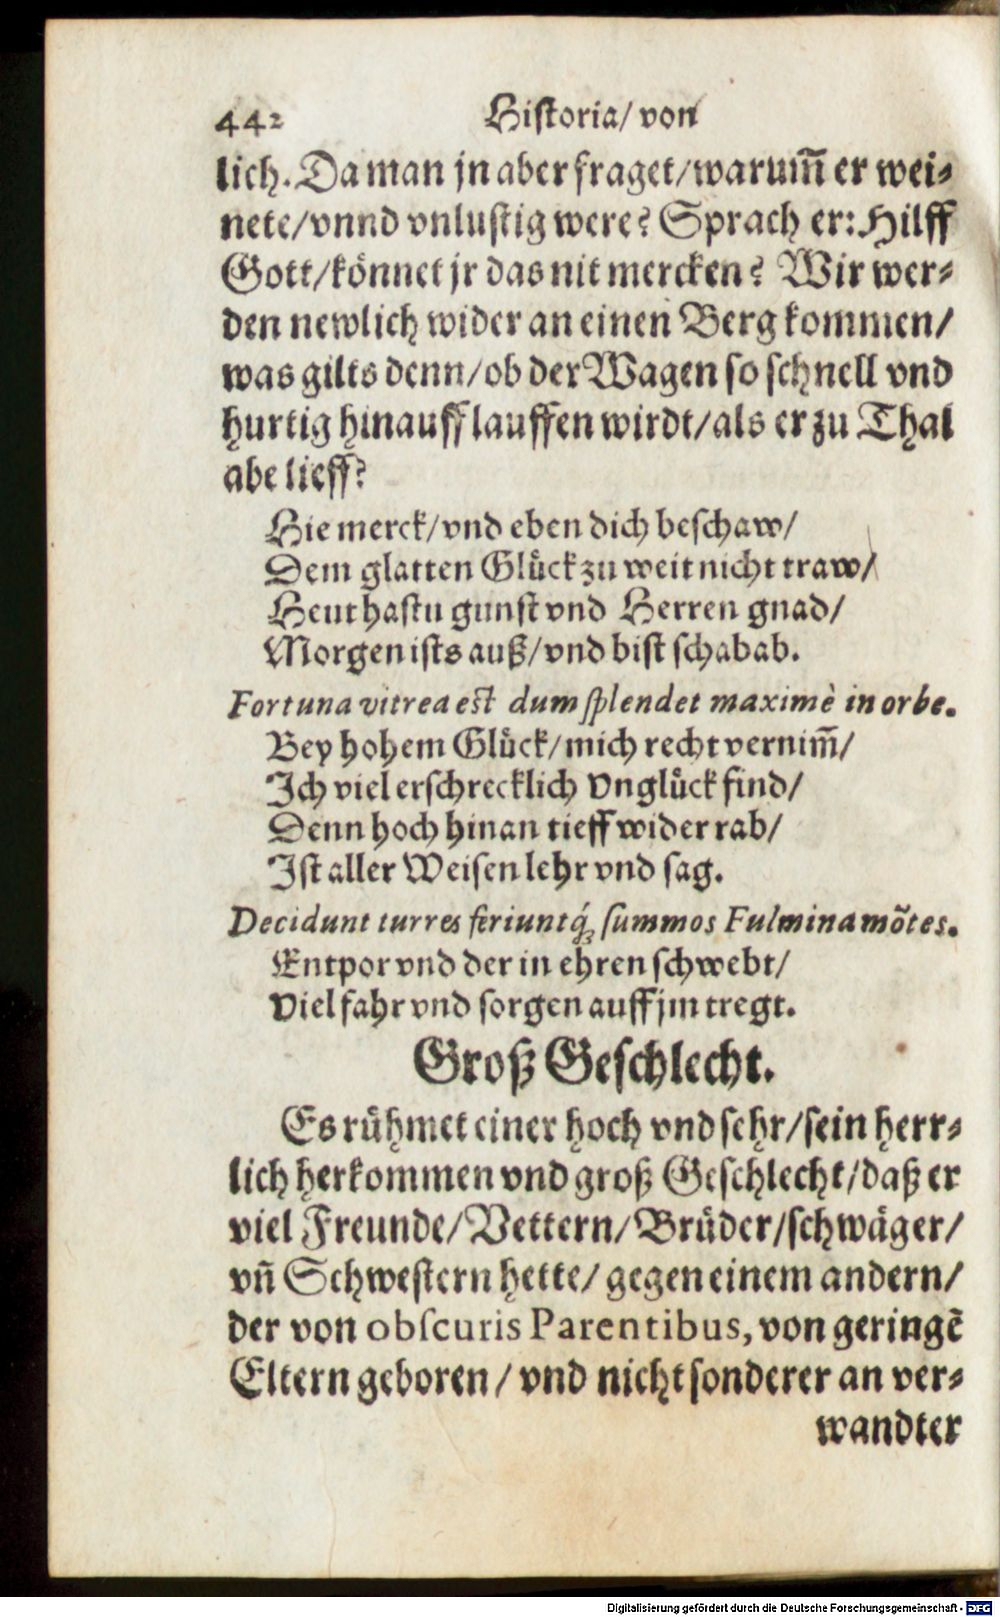 442 Historia/ von
lich. Da man jn aber fraget/ warum̃ er wei-
nete/ vnnd vnlustig were? Sprach er: Hilff
Gott/ könnet jr das nit mercken? Wir wer-
den newlich wider an einen Berg kommen/
was gilts denn/ ob der Wagen so schnell vnd
hurtig hinauff lauffen wirdt/ als er zu Thal
abe lieff?
Hie merck/ vnd eben dich beschaw/
Dem glatten Glück zu weit nicht traw/
Heut hastu gunst vnd Herren gnad/
Morgen ists auß/ vnd bist schabab.
Fortuna vitrea est dum splendet maximè in orbe.
Bey hohem Glück/ mich recht vernim̃/
Ich viel erschrecklich Vnglück find/
Denn hoch hinan tieff wider rab/
Ist aller Weisen lehr vnd sag.
Decidunt turres feriuntq́; summos Fulmina mõtes.
Entpor vnd der in ehren schwebt/
Viel fahr vnd sorgen auff jm tregt.
Groß Geschlecht.
Es rühmet einer hoch vnd sehr/ sein herr-
lich herkommen vnd groß Geschlecht/ daß er
viel Freunde/ Vettern/ Brüder/ schwäger/
vñ Schwestern hette/ gegen einem andern/
der von obscuris Parentibus, von geringẽ
Eltern geboren/ vnd nicht sonderer an ver-
wandter
Digitalisierung gefördert durch die Deutsche Forschungsgemeinschaft - DFG